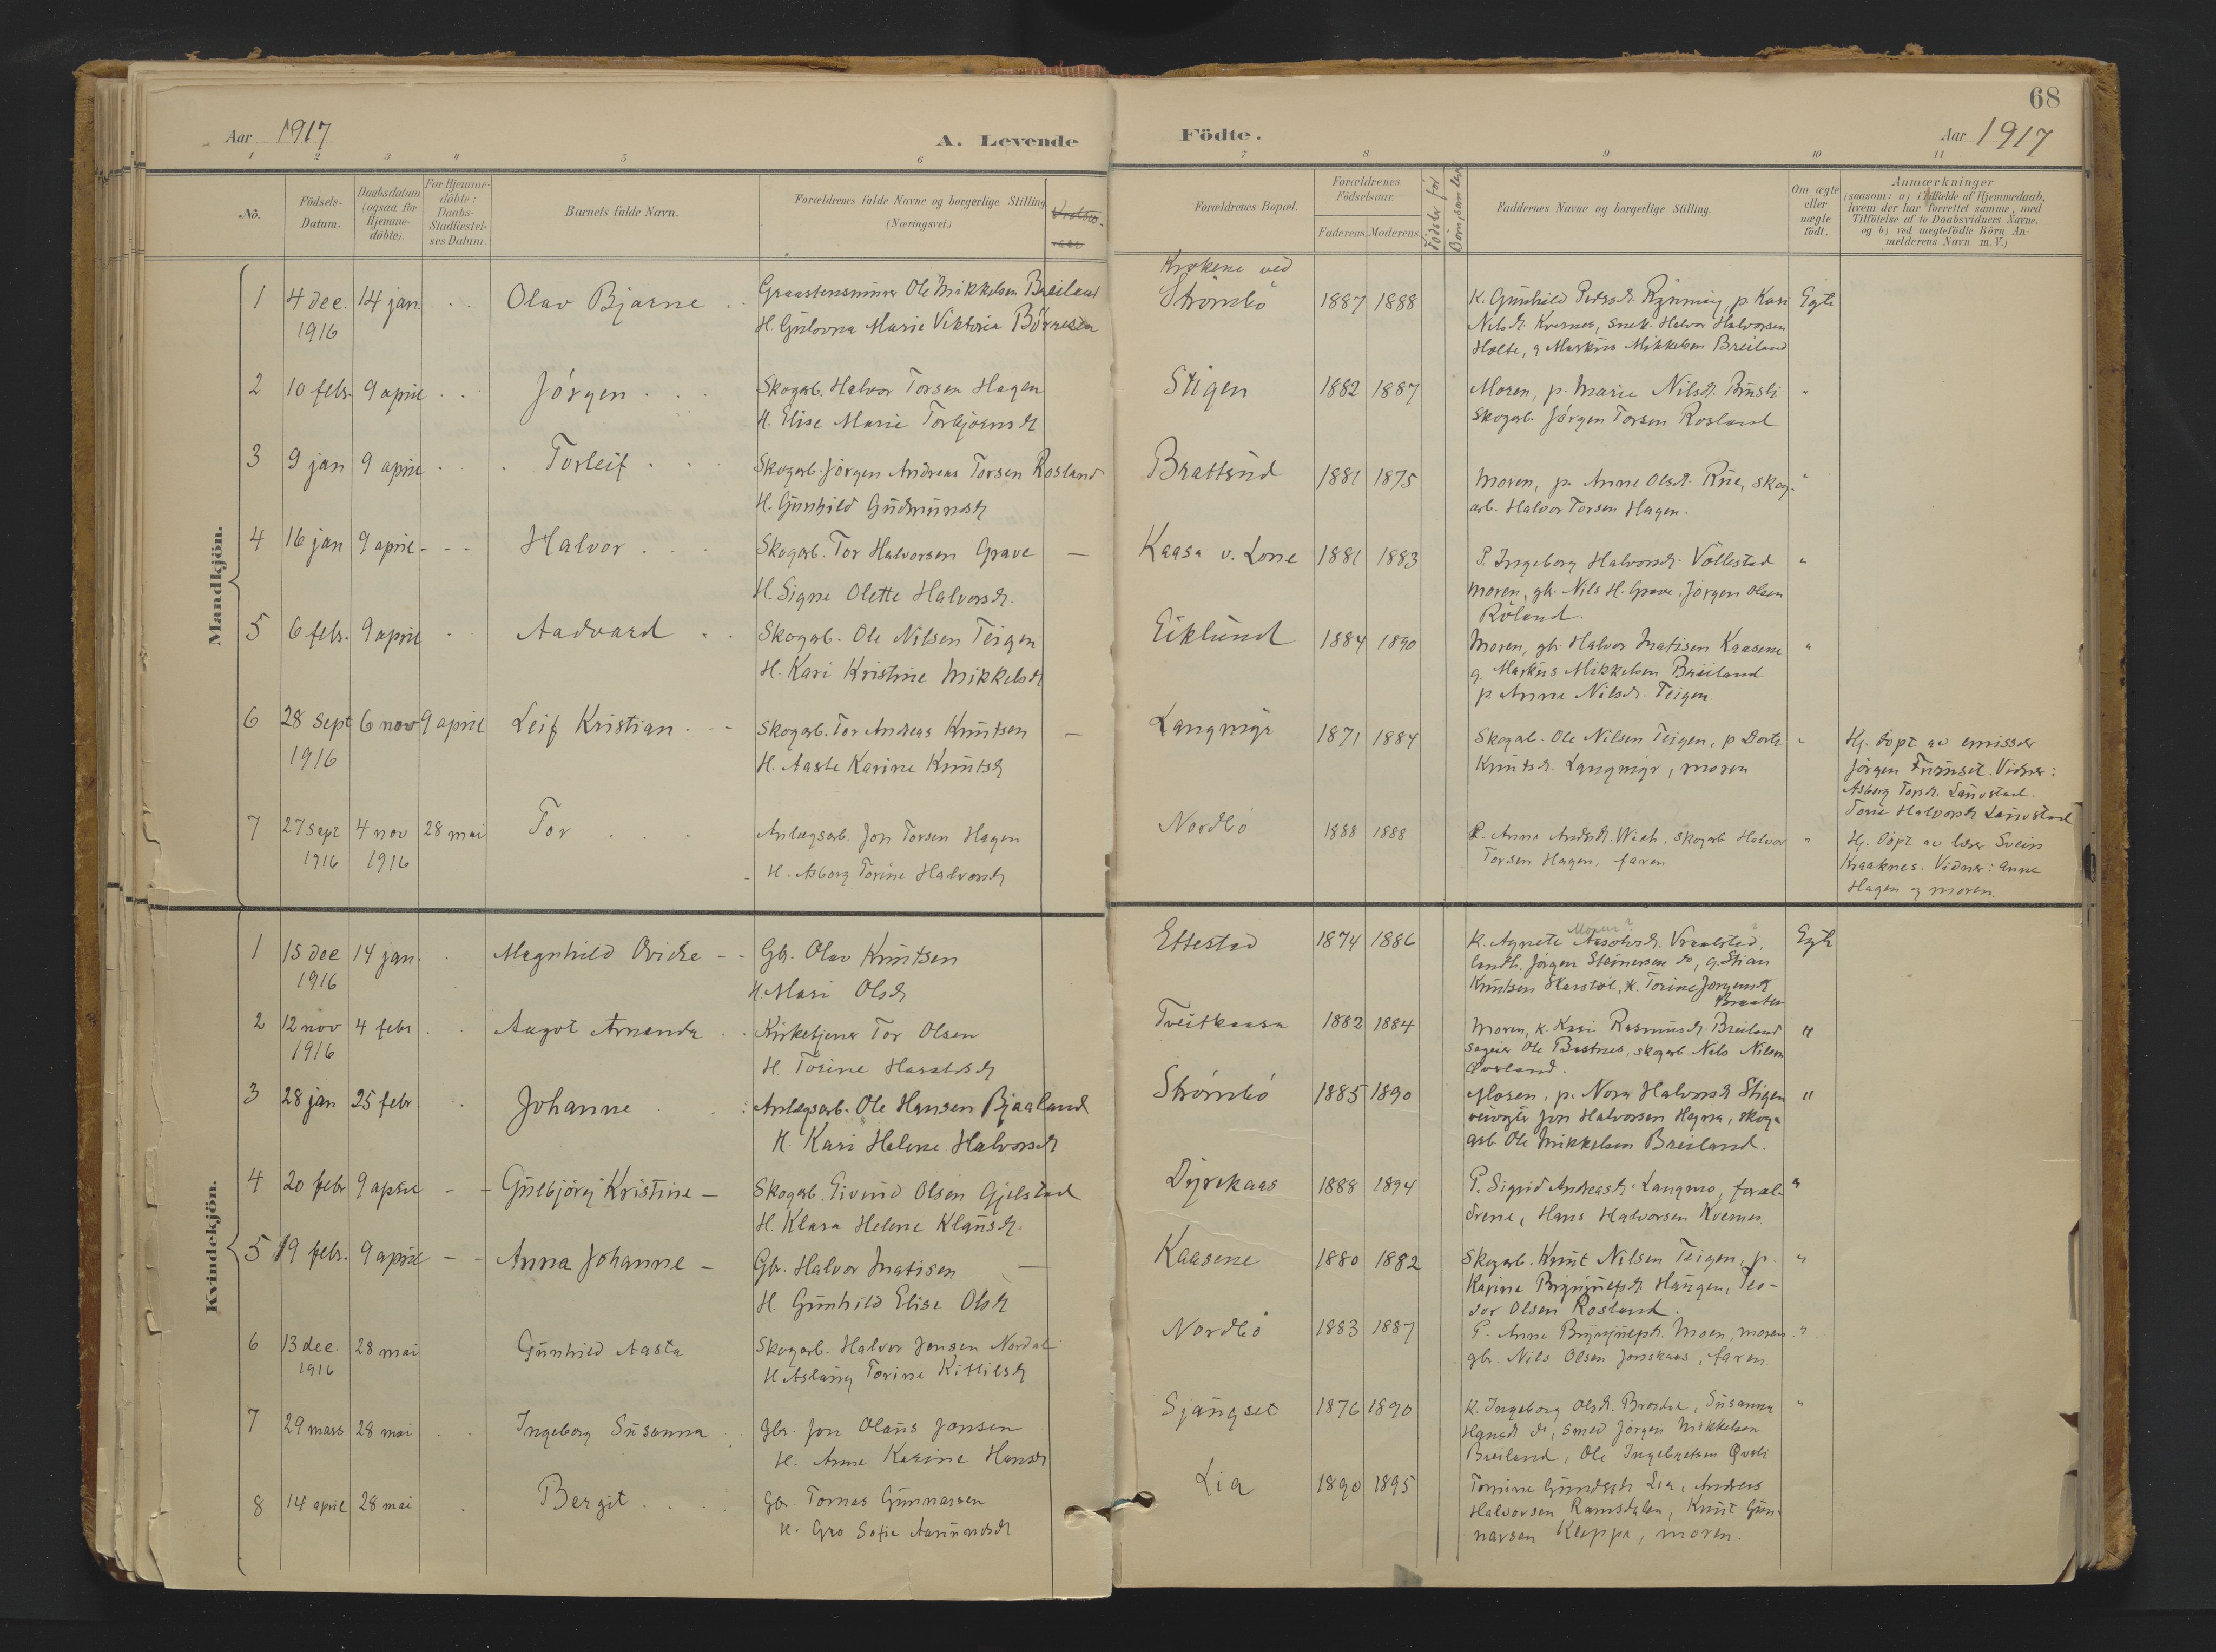 68
Aar 1917
A. Levende
Födte.
Aar 1917
1 2 3 4 5 6 7 8 9 10 11
No.
Födsels-
Datum.
Daabsdatum
(ogsaa for
Hjemme-
döbte).
For Hjemme-
döbte:
Daabs-
Stadfæstel-
ses Datum.
Barnets fulde Navn.
Forældrenes fulde Navne og borgerlige Stilling
(Næringsvei.)
Forældrenes Bopæl.
Forældrenes
Födselsaar.
Faderens. Moderens.
Faddernes Navne og borgerlige Stilling.
Om ægte
eller
uægte
födt.
Anmærkninger
(saasom: a) i Tilfælde af Hjemmedaab,
hvem der har forrettet samme, med
Tilföielse af to Daabsvidners Navne.
og b) ved uægtefödte Börn An-
melderens Navn m. V.)
Mandkjön.
1
4 dec.
1916
14 jan.
Olav Bjarne
Ole Mikkelsen Breiland
H. Marie Viktoria Börresen
Krokene ved
Strömbö
1887 1888
K. Gunhild Rynning, p. Kari
Nilsd. Kvernes, Halvor Halvorsen
Holte, g Markus Mikkelsen Breiland
Egte
2
10 febr. 9 april
Jörgen
Skogarb. Halvor Torsen Hagen
H. Elise Marie Torbjörnsd
Stigen
1882 1887
Moren, p. Marie Nilsd.
Skogarb. Jörgen Torsen Rosland
"
3
9 jan 9 april
Torleif
Skogarb. Jörgen Andreas Torsen Rosland
H. Gunhild Gudmundsd
Brattsund
1881 1875
Moren, p. Anne Olsd. Rue, skog-
arb. Halvor Torsen Hagen.
"
4
16 jan 9 april
Halvor
Skogarb. Tor Halvorsen Grave
H. Signe Olette Halvorsd.
Kaasa v. Lone
1881 1883
P. Ingeborg Halvorsd. Völlestad
moren, gb. Nils H. Grave, Jörgen Olsen
Röland.
"
5
6 febr. 9 april
Aadvard
Skogarb. Ole Nilsen Teigen
H. Kari Kristine Mikkelsd
Eiklund
1884 1890
Moren, gb. Halvor Matisen Kaasene
g. Markus Mikkelsen Breiland
p. Anne Nilsd. Teigen.
"
6
28 Sept
1916
6 nov 9 april
Leif Kristian
Skogarb. Tor Andreas Knutsen
H. Aaste Karine Knutsd
Langmyr
1871 1884
Skogarb. Ole Nilsen Teigen, p Dorte
Knutsd. Langmyr, moren
"
Hj. döpt av emissær
Jörgen Furuset. Vidner:
Asborg Torsd. Landstad.
Tone Halvorsd Landstad
7
27 Sept
1916
4 nov
1916
28 mai
Tor
Anlægsarb. Jon Torsen Hagen
H. Asborg Torine Halvorsd
Nordbö
1888 1888
P. Anna Andrsd. skogarb Halvor
Torsen Hagen, faren
"
Hj. döpt av lærer Svein
Kraaknes. Vidner: Anne
Hagen og moren.
Kvindekjön.
1
15 dec
1916
14 jan.
Magnhild Ovidia
Gb. Olav Knutsen
H Mari Olsd
Ettestad
1874 1886
Moren?
K. Agnete Vraalstad,
Jörgen Steinersen do, g. Stian
Knutsen Harstöl, K. Torine Jörgensd
Braaten
Egte
2
12 nov
1916
4 febr
Aagot Amanda
Kirketjener Tor Olsen
H. Torine Haraldsd
Tveitkaasa
1882 1884
Moren, K. Kari Rasmusd. Breiland
sageier Ole Bostnes, skogarb Nils Nilsen
"
3
28 jan 25 febr
Johanne
Anlægsarb. Ole Hansen Bjaaland
H. Kari Helene Halvorsd
Strömbö
1885 1890
Moren, p. Nora Halvorsd Stigen
veivogter Jon Halvorsen Hegna, skog-
arb. Ole Mikkelsen Breiland.
"
4
20 febr 9 april
Gulbjörg Kristine
Skogarb. Eivind Olsen Gjelstad
H. Klara Helene Klausd.
Dyrekaas
1888 1894
P. Sigrid Andreasd. Langmo, foræl-
drene, Hans Halvorsen Kvernes.
"
5
19 febr. 9 april
Anna Johanne
Gb. Halvor Matisen
H. Gunhild Elise Olsd
Kaasene
1880 1882
Skogarb. Knut Nilsen Teigen, p.
Karine Brynjulfsd. Haugen, Teo-
dor Olsen Rosland.
"
6
13 dec.
1916
28 mai
Gunhild Aasta
Skogarb. Halvor Jensen Nordal
H Aslaug Torine Kittilsd
Nordbö
1883 1887
P. Anne Brynjulfsd. Moen, moren
gb. Nils Olsen Jonskaas, faren.
"
7
29 mars 28 mai
Ingeborg Susanna
Gb. Jon Olaus Jonsen
H. Anne Karine Hansd
Sjangset
1876 1890
K. Ingeborg Olsd. Susanna
Hansd do, smed Jörgen Mikkelsen
Breiland, Ole Ingebretsen
"
8
14 april 28 mai
Bergit
Gb. Tomas Gunnarsen
H. Gro Sofie Aamundsd
Lia
1890 1895
Tomine Lia, Anders
Halvorsen Ramsdalen, Knut Gun-
narsen Kleppa, moren.